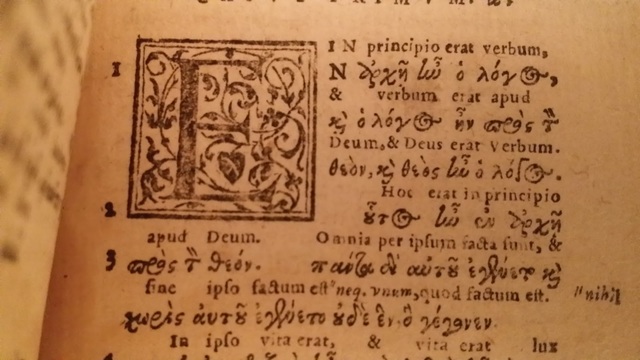 1 IN principio erat verbum,
EN ἀρχῇ ἦν ὁ λόγος,
& verbum erat apud
καὶ ὁ λόγος ἦν πρὸς τὸν
Deum, & Deus erat Verbum.
θεὸν, καὶ θεὸς ἦν ὁ λόγος.
Hoc erat in principio
2 οὗτος ἦν ἐν ἀρχῇ
apud Deum. Omnia per ipsum facta sunt, &
3 πρὸς τὸν θεόν. πάντα δι' αὐτοῦ ἐγένετο καὶ
sine ipso factum est "neq. vnum, quod factum est. "nihil
χωρὶς αὐτοῦ ἐγένετο οὐδὲ ἓν ὃ γέγονεν.
In ipso vita erat, & vita erat lux